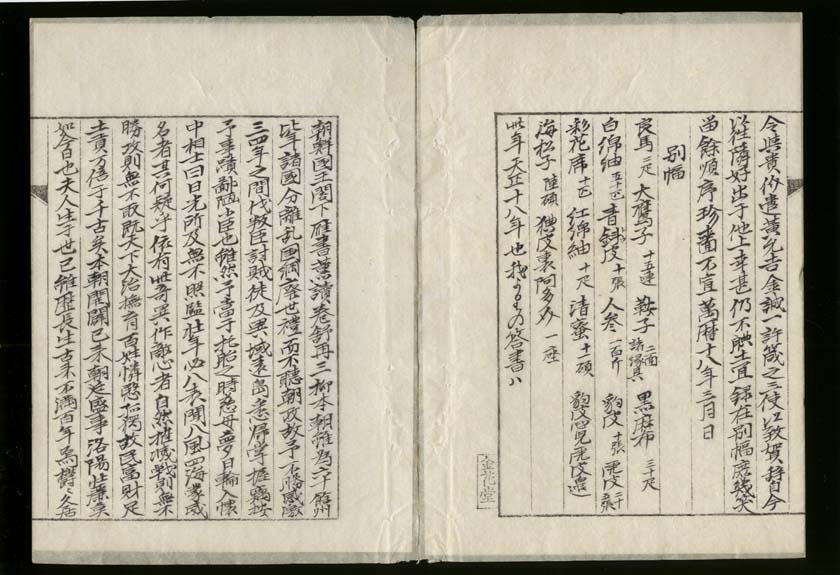 令与貴价遣黄允吉金誠一許筬之三使以致賀辞自今
以往隣好出于他上幸甚仍不腆土宜録在別幅庶幾笑
留餘順序珍嗇不宣萬暦十八年三月日
別幅
良馬 二疋 大鷹子 十五連 鞍子 二面 諸縁具 黒麻布 三十疋
白綿紬 五十疋 青斜皮 十張 人参 一百斤 豹皮 十張 虎皮 二十張
彩花席 十 紅綿紬 十疋 清蜜 十一碩 豹皮 虎皮邊
海松子 陸碩 狸皮裏阿多介 一座
此年天正十八年也 答書ハ
朝鮮國王閣下雁書薫讀巻舒再三抑本朝雖為六十餘州
比年諸國分離乱国綱廢世禮而不聽朝政故予不勝感激
三四年之間伐叛臣討賊徒及異域遠島悉歸掌握竊按
予事蹟鄙陋小臣也雖然予當于托胎之時慈母夢日輪入懐
中相士曰日光所及無不照臨壮年必八表聞八風四海蒙威
名者其何疑乎依有此奇異作敵心者自然摧滅戰則無不
勝攻則無不取既天下大治撫育百姓憐愍孤獨故民富財足
土貢万倍于千古矣本朝開闢已来朝廷盛事洛陽壮麗莫
如今日也夫人生于世已雖歴長生古来不満百年焉鬱々久居
金花堂